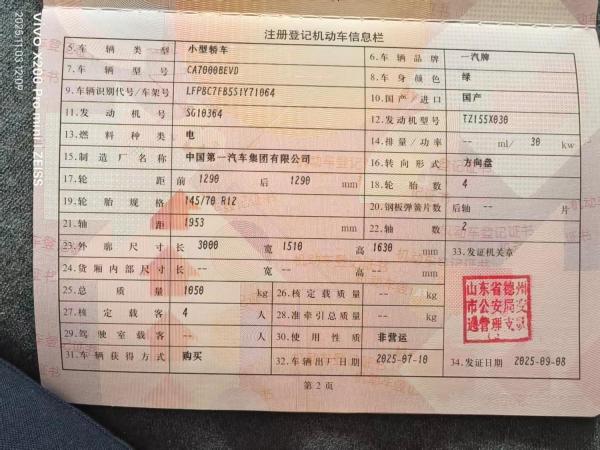 注册登记机动车信息栏
5.车辆类型 小型轿车 6.车辆品牌 一汽牌
7.车辆型号 CA7000BEVD 8.车身颜色 绿
9.车辆识别代号/车架号 LFPBC7FB5S1Y71064 10.国产/进口 国产
11.发动机号 SG10364 12.发动机型号 TZ155X030
13.燃料种类 电 14.排量/功率 -- ml/ 30 kw
15.制造厂名称 中国第一汽车集团有限公司 16.转向形式 方向盘
17.轮距 前 1290 后 1290 mm 18.轮胎数 4
19.轮胎规格 145/70 R12 20.钢板弹簧片数 后轴 -- 片
21.轴距 1953 mm 22.轴数 2
23.外廓尺寸 长 3000 宽 1510 高 1630 mm 33.发证机关章
24.货厢内部尺寸 长 -- 宽 -- 高 -- mm
25.总质量 1050 kg 26.核定载质量 -- kg
27.核定载客 4 人 28.准牵引总质量 -- kg
29.驾驶室载客 -- 人 30.使用性质 非营运
31.车辆获得方式 购买 32.车辆出厂日期 2025-07-10 34.发证日期 2025-09-08
山东省德州
市公安局交
通管理支队
第2页
vivo X200 Pro mini | ZEISS
2025.11.03 12:09